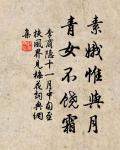 素娥惟與月
青女不饒霜
李商隱十一月中旬至
扶風界見梅花詞典網
集